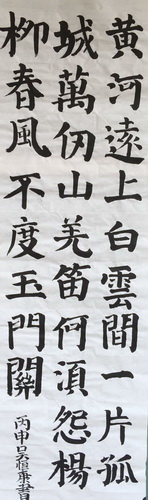 黄河遠上白雲間一片孤
城萬仞山羌笛何須怨楊
柳春風不度玉門關
丙申吴恒秉書